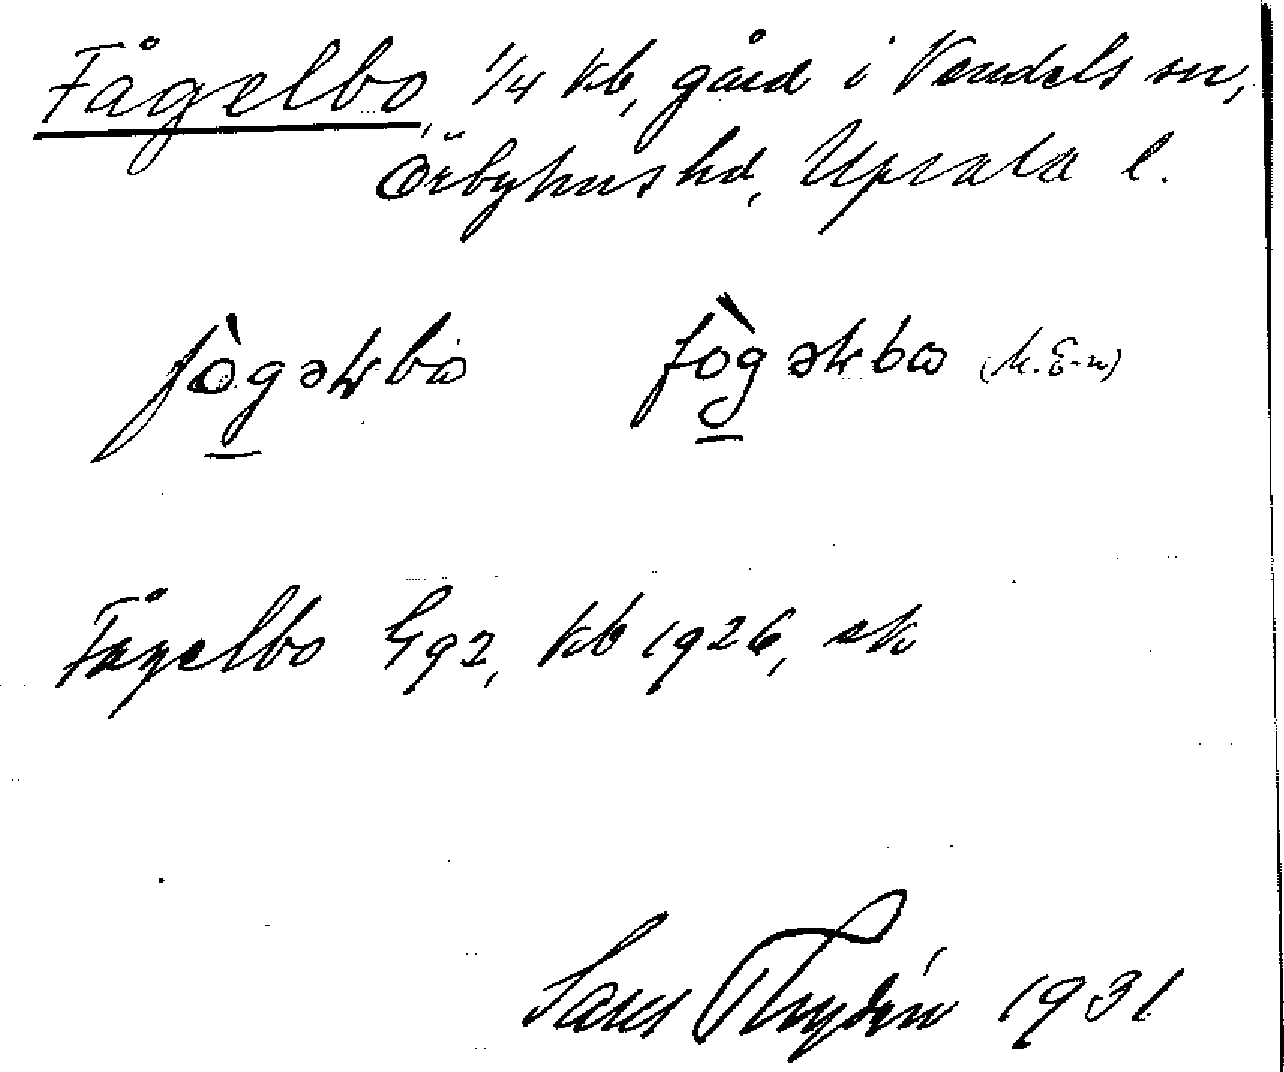 Fågelbo, 1/4 kb, gård i Vendels sn,
Örbyhus hd, Upsala l.
fògəɫbo fògəɫbo (M. E-n)
Fågelbo G92, kb 1926, ek
Lars Thydén 1931